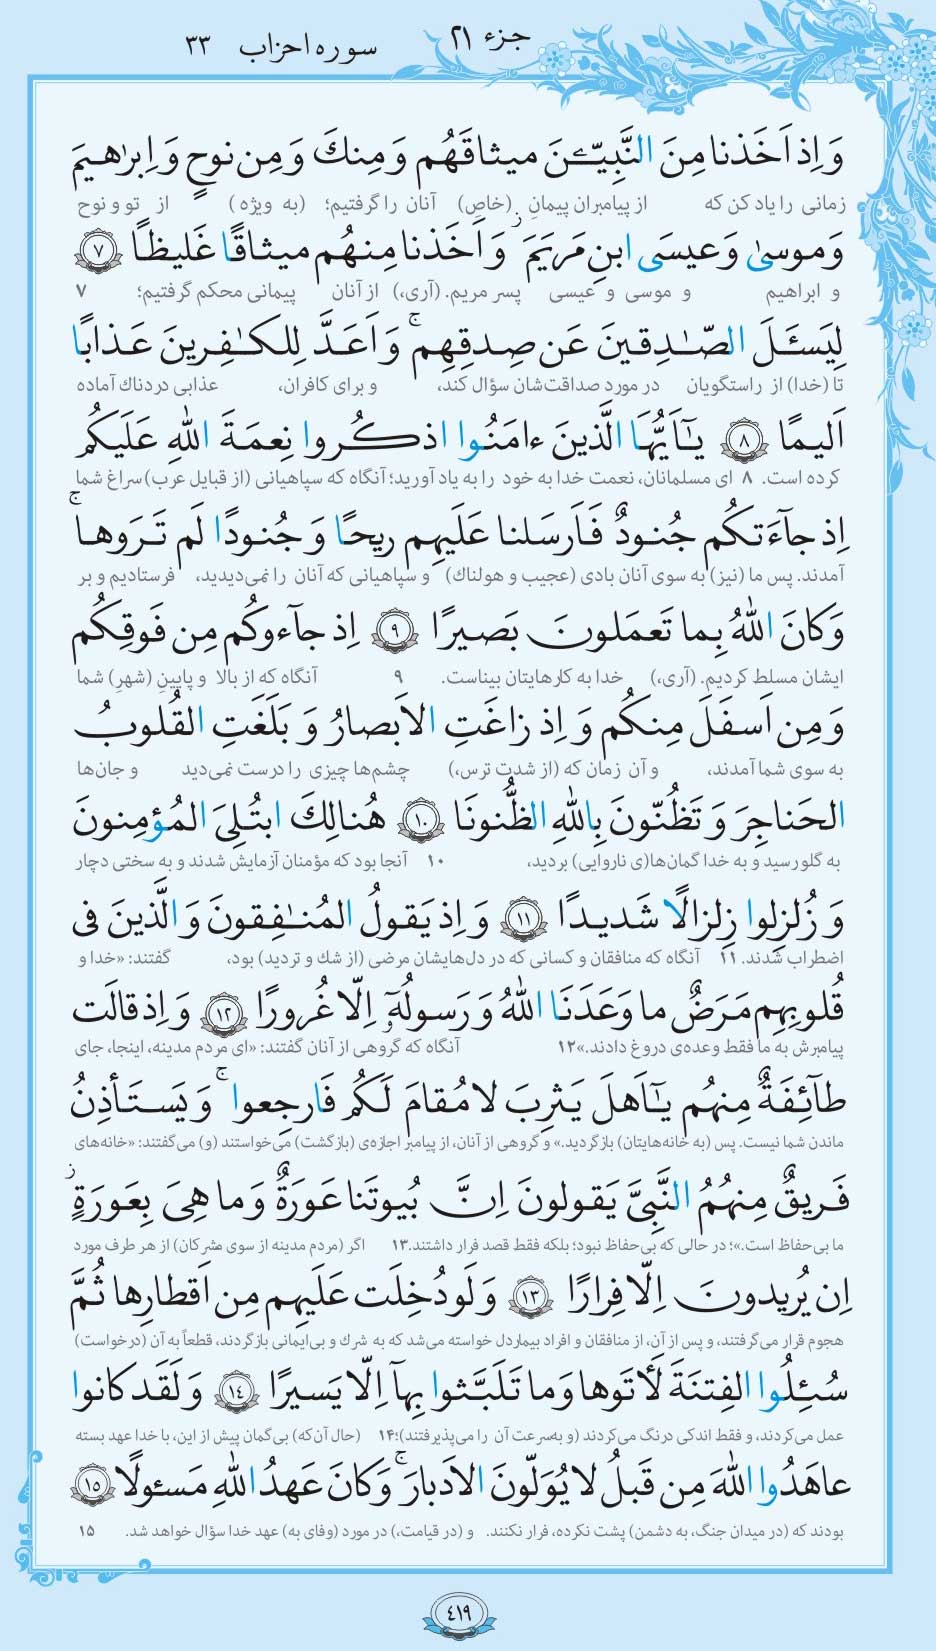 جزء ۲۱ سوره احزاب ۳۳
وَ اِذ اَخَذنا مِنَ النَّبِيّـۧنَ ميثاقَهُم وَ مِنكَ وَ مِن نوحٍ وَ اِبرٰهيمَ
زمانی را یاد کن که از پیامبران پیمانِ (خاص) آنان را گرفتیم؛ (به ویژه) از تو و نوح
وَ موسىٰ وَ عيسَى ابنِ مَريَمَ ۖ وَ اَخَذنا مِنهُم ميثاقًا غَليظًا ﴿۷﴾
و ابراهیم و موسی و عیسی پسر مریم. (آری،) از آنان پیمانی محکم گرفتیم؛ ۷
لِيَسـَٔلَ الصّـٰدِقينَ عَن صِدقِهِم ۚ وَ اَعَدَّ لِلكـٰفِرينَ عَذابًا
تا (خدا) از راستگویان در مورد صداقت‌شان سؤال کند، و برای کافران، عذابی دردناك آماده
اَليمًا ﴿۸﴾ يـٰٓاَيُّهَا الَّذينَ ءامَنُوا اذكُروا نِعمَةَ اللّٰهِ عَلَيكُم
کرده است. ۸ ای مسلمانان، نعمت خدا به خود را به یاد آورید؛ آنگاه که سپاهیانی (از قبایل عرب) سراغ شما
اِذ جآءَتكُم جُنودٌ فَاَرسَلنا عَلَيهِم ريحًا وَ جُنودًا لَم تَرَوها ۚ
آمدند. پس ما (نیز) به سوی آنان بادی (عجیب و هولناك) و سپاهیانی که آنان را نمی‌دیدید، فرستادیم و بر
وَ كانَ اللّٰهُ بِما تَعمَلونَ بَصيرًا ﴿۹﴾ اِذ جآءوكُم مِن فَوقِكُم
ایشان مسلط کردیم. (آری،) خدا به کارهایتان بیناست. ۹ آنگاه که از بالا و پایین (شهرِ) شما
وَ مِن اَسفَلَ مِنكُم وَ اِذ زاغَتِ الاَبصارُ وَ بَلَغَتِ القُلوبُ
به سوی شما آمدند، و آن زمان که (از شدت ترس،) چشم‌ها چیزی را درست نمی‌دید و جان‌ها
الحَناجِرَ وَ تَظُنّونَ بِاللّٰهِ الظُّنونَا ﴿۱۰﴾ هُنالِكَ ابتُلِىَ المُؤمِنونَ
به گلو رسید و به خدا گمان‌ها(ی ناروایی) بردید، ۱۰ آنجا بود که مؤمنان آزمایش شدند و به سختی دچار
وَ زُلزِلوا زِلزالًا شَديدًا ﴿۱۱﴾ وَ اِذ يَقولُ المُنـٰفِقونَ وَ الَّذينَ فى
اضطراب شدند. ۱۱ آنگاه که منافقان و کسانی که در دل‌هایشان مرضی (از شك و تردید) بود، گفتند: «خدا و
قُلوبِهِم مَرَضٌ ما وَعَدَنَا اللّٰهُ وَ رَسولُهٓ اِلّا غُرورًا ﴿۱۲﴾ وَ اِذ قالَت
پیامبرش به ما فقط وعده‌ی دروغ دادند.» ۱۲ آنگاه که گروهی از آنان گفتند: «ای مردم مدینه، اینجا، جای
طآئِفَةٌ مِنهُم يـٰٓاَهلَ يَثرِبَ لا مُقامَ لَكُم فَارجِعوا ۚ وَ يَستَأذِنُ
ماندن شما نیست. پس (به خانه‌هایتان) بازگردید.» و گروهی از آنان، از پیامبر اجازه‌ی (بازگشت) می‌خواستند (و) می‌گفتند: «خانه‌های
فَريقٌ مِنهُمُ النَّبِىَّ يَقولونَ اِنَّ بُيوتَنا عَورَةٌ وَ ما هِىَ بِعَورَةٍ ۖ
ما بی‌حفاظ است.»؛ در حالی که بی‌حفاظ نبود؛ بلکه فقط قصد فرار داشتند. ۱۳ اگر (مردم مدینه از سوی مشرکان) از هر طرف مورد
اِن يُريدونَ اِلّا فِرارًا ﴿۱۳﴾ وَ لَو دُخِلَت عَلَيهِم مِن اَقطارِها ثُمَّ
هجوم قرار می‌گرفتند، و پس از آن، از منافقان و افراد بیماردل خواسته می‌شد که به شرك و بی‌ایمانی بازگردند، قطعاً به آن (درخواست)
سُئِلُوا الفِتنَةَ لَأٰتَوها وَ ما تَلَبَّثوا بِهآ اِلّا يَسيرًا ﴿۱۴﴾ وَ لَقَد كانوا
عمل می‌کردند، و فقط اندکی درنگ می‌کردند (و به‌سرعت آن را می‌پذیرفتند)؛ ۱۴ (حال آن‌که) بی‌گمان پیش از این، با خدا عهد بسته
عاهَدُوا اللّٰهَ مِن قَبلُ لا يُوَلّونَ الاَدبارَ ۚ وَ كانَ عَهدُ اللّٰهِ مَسئولًا ﴿۱۵﴾
بودند که (در میدان جنگ، به دشمن) پشت نکرده، فرار نکنند. و (در قیامت،) در مورد (وفای به) عهد خدا سؤال خواهد شد. ۱۵
۴۱۹